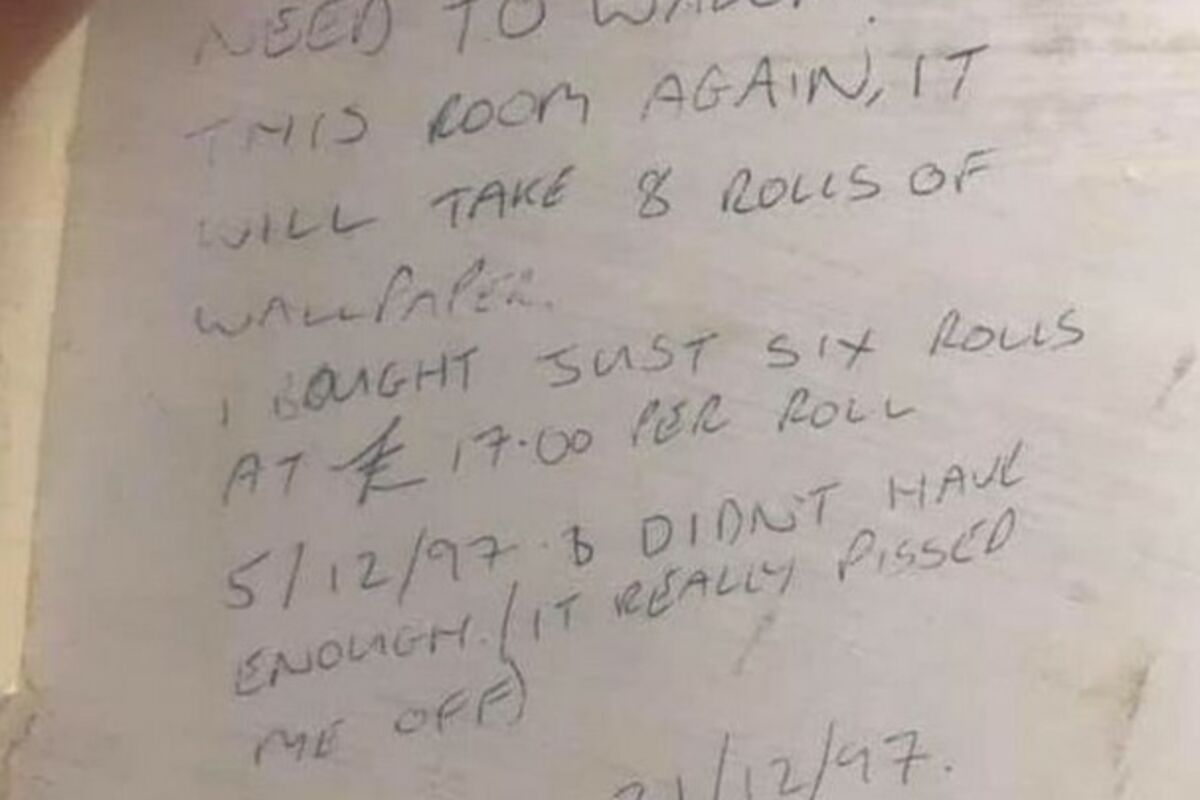 NEED TO
THIS ROOM AGAIN, IT
WILL TAKE 8 ROLLS OF
WALLPAPER.
I BOUGHT JUST SIX ROLLS
AT £ 17.00 PER ROLL
5/12/97. & DIDN'T HAVE
ENOUGH. (IT REALLY PISSED
ME OFF)
21/12/97.